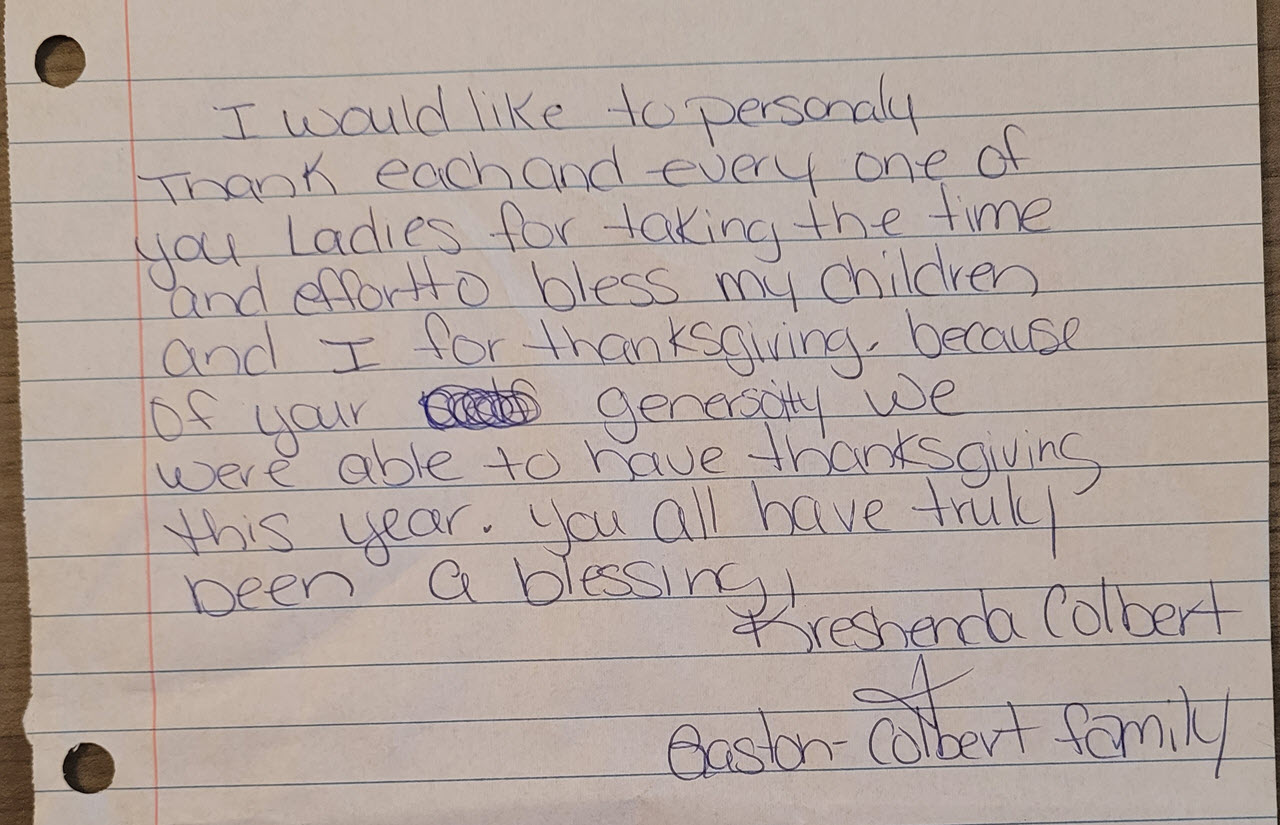 I would like to personaly
Thank each and every one of
you Ladies for taking the time
and effort to bless my children
and I for thanksgiving. because
of your genersoity we
were able to have thanksgiving
this year. you all have truly
been a blessing,
Kreshenda Colbert
&
Easton-Colbert family